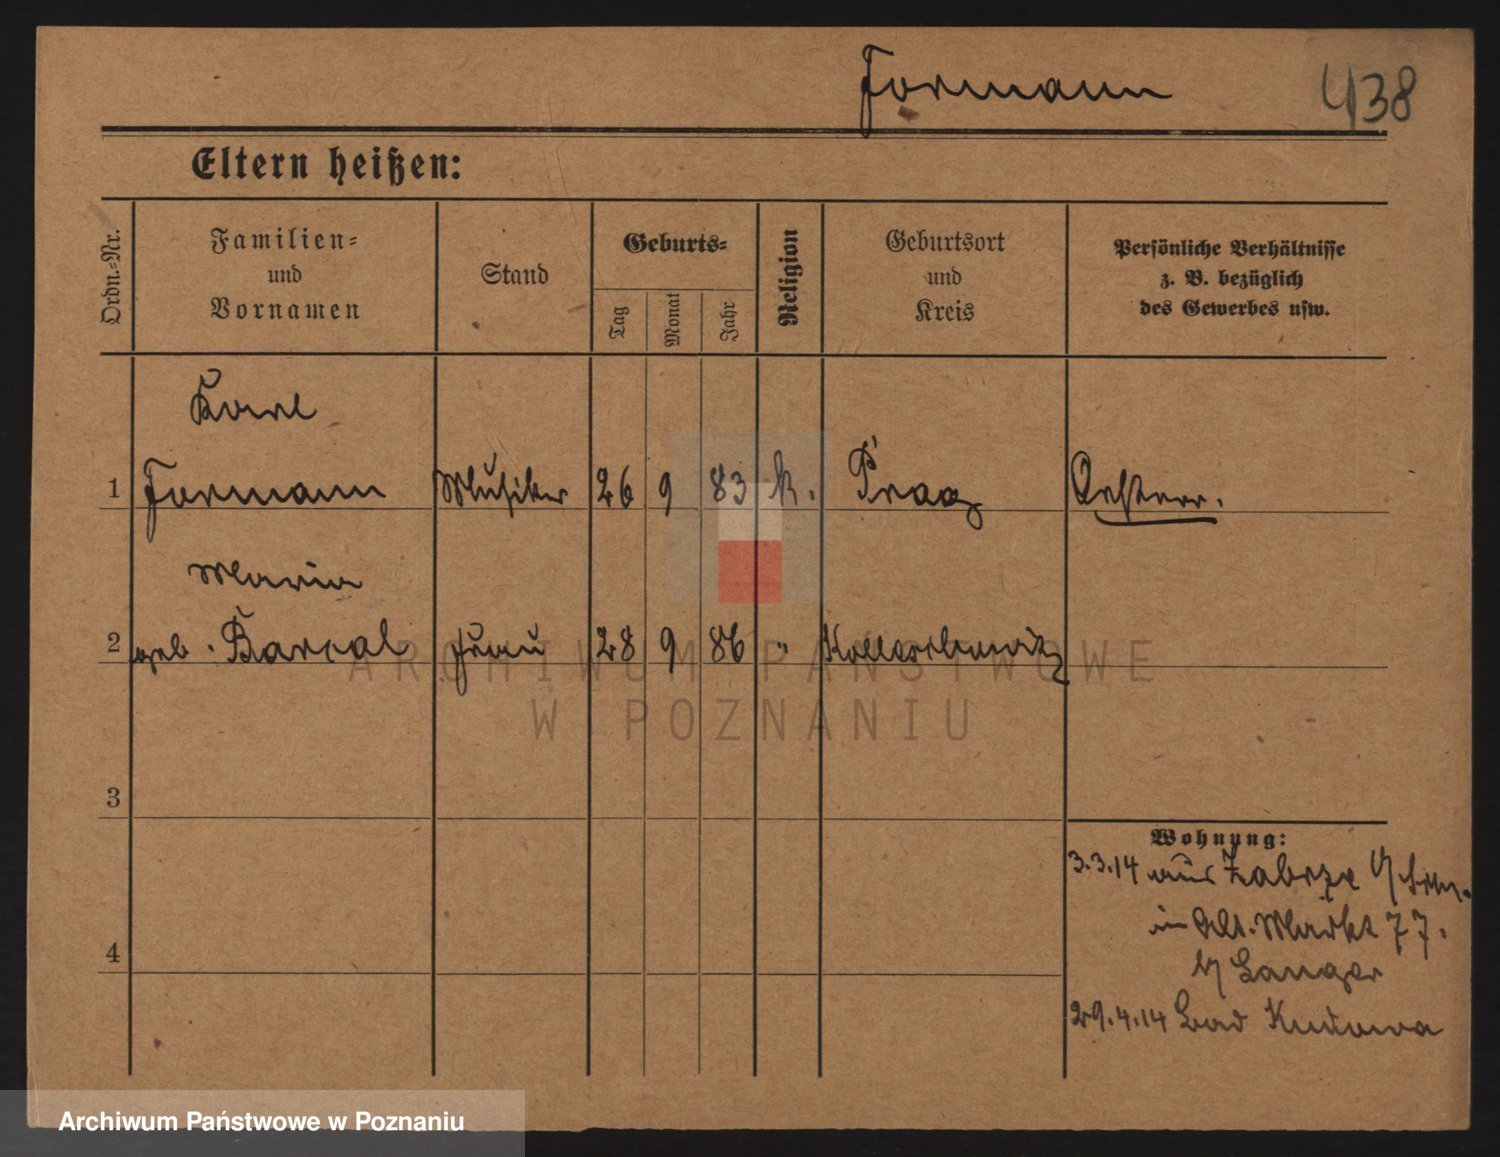 Formann 438
Eltern heißen:
Ordn.-Nr.
Familien-
und
Vornamen
Stand
Geburts-
Tag
Monat
Jahr
Religion
Geburtsort
und
Kreis
Persönliche Verhältnisse
z. B. bezüglich
des Gewerbes usw.
Karl
1 Formann Musiker 26 9 83 k. Prag Oesterr.
Maria
2 geb. Barcal Frau 28 9 86 "
3
4
Wohnung:
3.3.14 aus Zabrze
in Alt. Markt 77.
b/ Langer
29.4.14 Bad Kudowa
ARCHIWUM PAŃSTWOWE
W POZNANIU
Archiwum Państwowe w Poznaniu